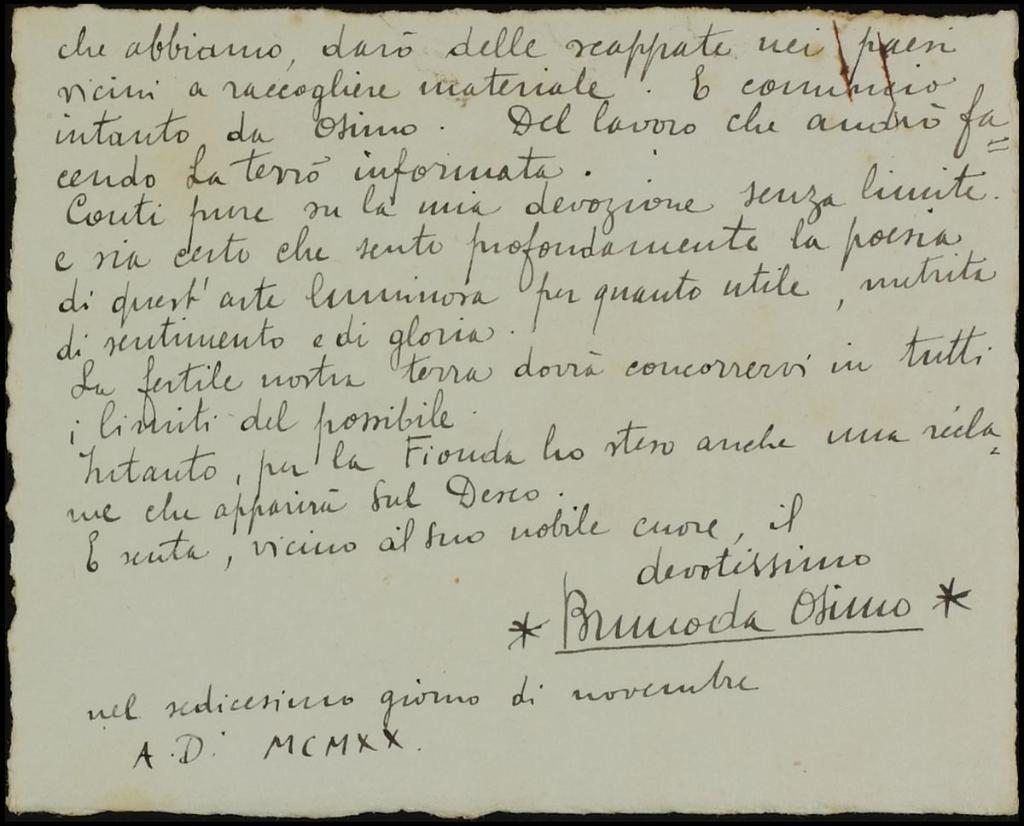 che abbiamo, darò delle scappate nei paesi
vicini a raccogliere materiale. E comincio
intanto da Osimo. Del lavoro che andrò fa=
cendo La terrò informata.
Conti pure su la mia devozione senza limite.
e sia certo che sento profondamente la poesia
di quest'arte luminosa per quanto utile, nutrita
di sentimento e di gloria.
La fertile nostra terra dovrà concorrervi in tutti
i limiti del possibile.
Intanto, per la Fionda ho steso anche una récla=
me che apparirà sul Desco.
E senta, vicino al suo nobile cuore, il
devotissimo
* Bruno da Osimo *
nel sedicesimo giorno di novembre
A.D. MCMXX.